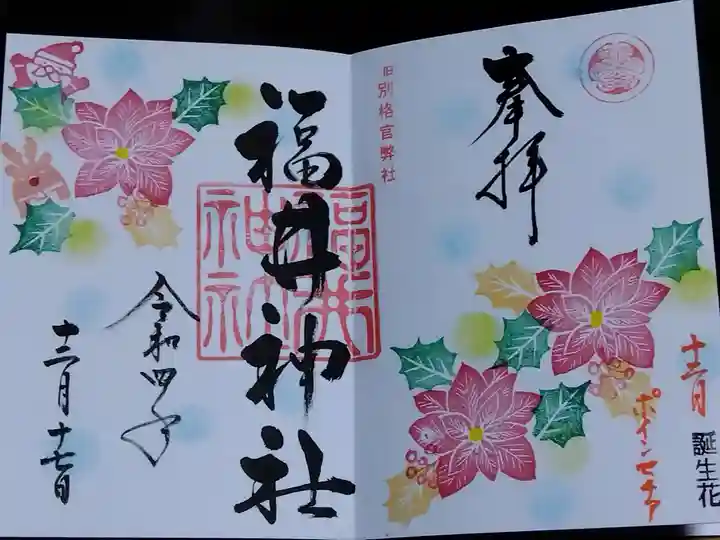 奉拝
旧別格官弊社
福井神社
福井
神社
令和四年
十二月十七日
十二月
誕生花
ポインセチア